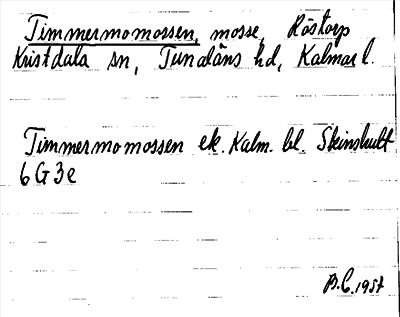 Timmermomossen, mosse, Röstorp
Kristdala sn, Tunaläns hd, Kalmar l.
Timmermomossen ek. Kalm. bl. Skinshult
6G3e
B.C. 1957